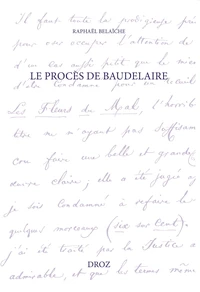 Il faut toute la prodigieuse pré
pour vous occuper l'attention de
RAPHAËL BELAÏCHE
d'un cas aussi petit que le mien
LE PROCÈS DE BAUDELAIRE
d'être condamné pour un recueil
Les Fleurs du Mal, l'horrib
titre ne m'ayant pas suffisam
cru faire une belle et grande
claire ; elle a été jugée
je suis condamné à refaire le
quelques morceaux (six sur Cent).
j'ai été traité par la Justice a
admirable, et que les termes même
DROZ